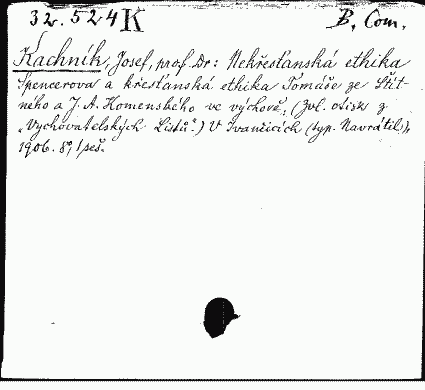 32.524 K B. Com.
Kachník, Josef, prof. Dr.: Nekřesťanská ethika
Spencerova a křesťanská ethika Tomáše ze Štít-
ného a J. A. Komenského ve výchově. (Zvl. otisk z
„Vychovatelských Listů“.) V Ivančicích (typ. Navrátil),
1906. 8°, 1 seš.